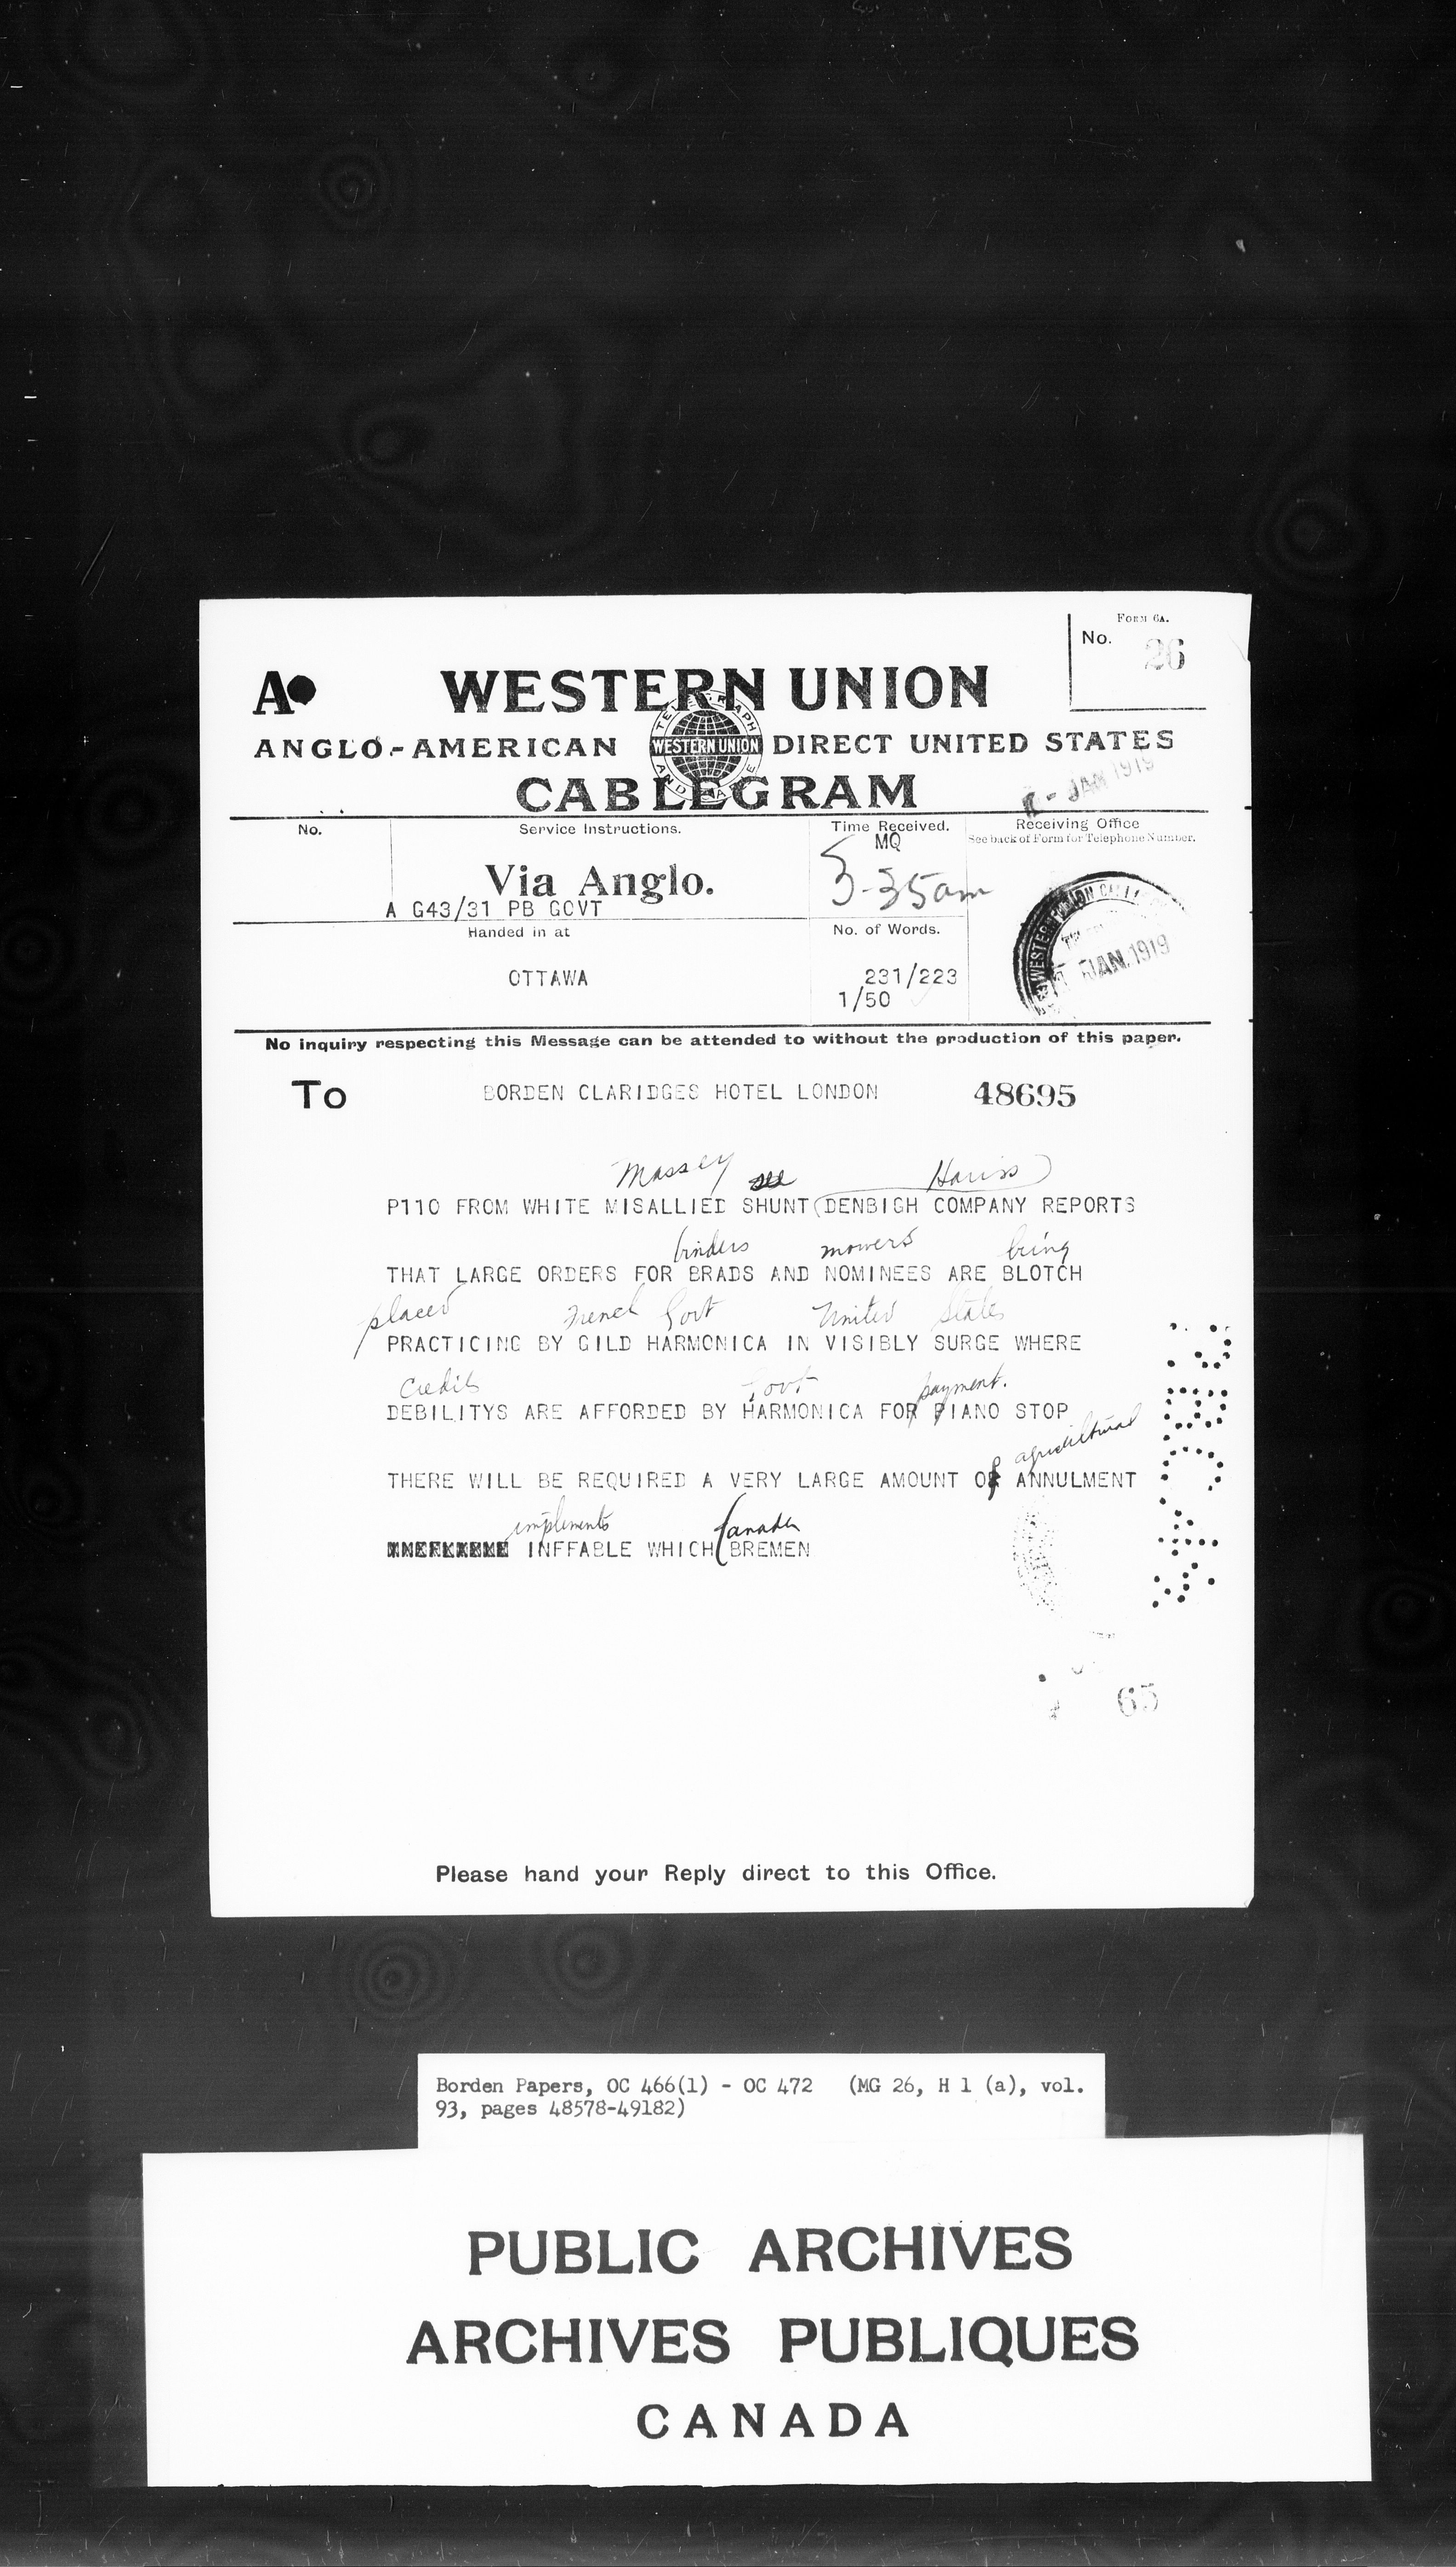 Form 6A.
No. 26
A
WESTERN UNION
TELEGRAPH AND CABLE
WESTERN UNION
ANGLO-AMERICAN DIRECT UNITED STATES
CABLEGRAM
JAN 1919
No.
Service Instructions.
Time Received.
Receiving Office
See back of Form for Telephone Number.
MQ
Via Anglo.
3-35am
A G43/31 PB GOVT
Handed in at
No. of Words.
OTTAWA
231/223
1/50
JAN. 1919
No inquiry respecting this Message can be attended to without the production of this paper.
To BORDEN CLARIDGES HOTEL LONDON 48695
Massey see Harris
P110 FROM WHITE MISALLIED SHUNT DENBIGH COMPANY REPORTS
binders mowers being
THAT LARGE ORDERS FOR BRADS AND NOMINEES ARE BLOTCH
placed French Govt United States
PRACTICING BY GILD HARMONICA IN VISIBLY SURGE WHERE
Credits Govt payment.
DEBILITYS ARE AFFORDED BY HARMONICA FOR PIANO STOP
agricultural
THERE WILL BE REQUIRED A VERY LARGE AMOUNT OF ANNULMENT
implements Canada
INFFABLE WHICH BREMEN
65
Please hand your Reply direct to this Office.
Borden Papers, OC 466(1) - OC 472 (MG 26, H 1 (a), vol.
93, pages 48578-49182)
PUBLIC ARCHIVES
ARCHIVES PUBLIQUES
CANADA